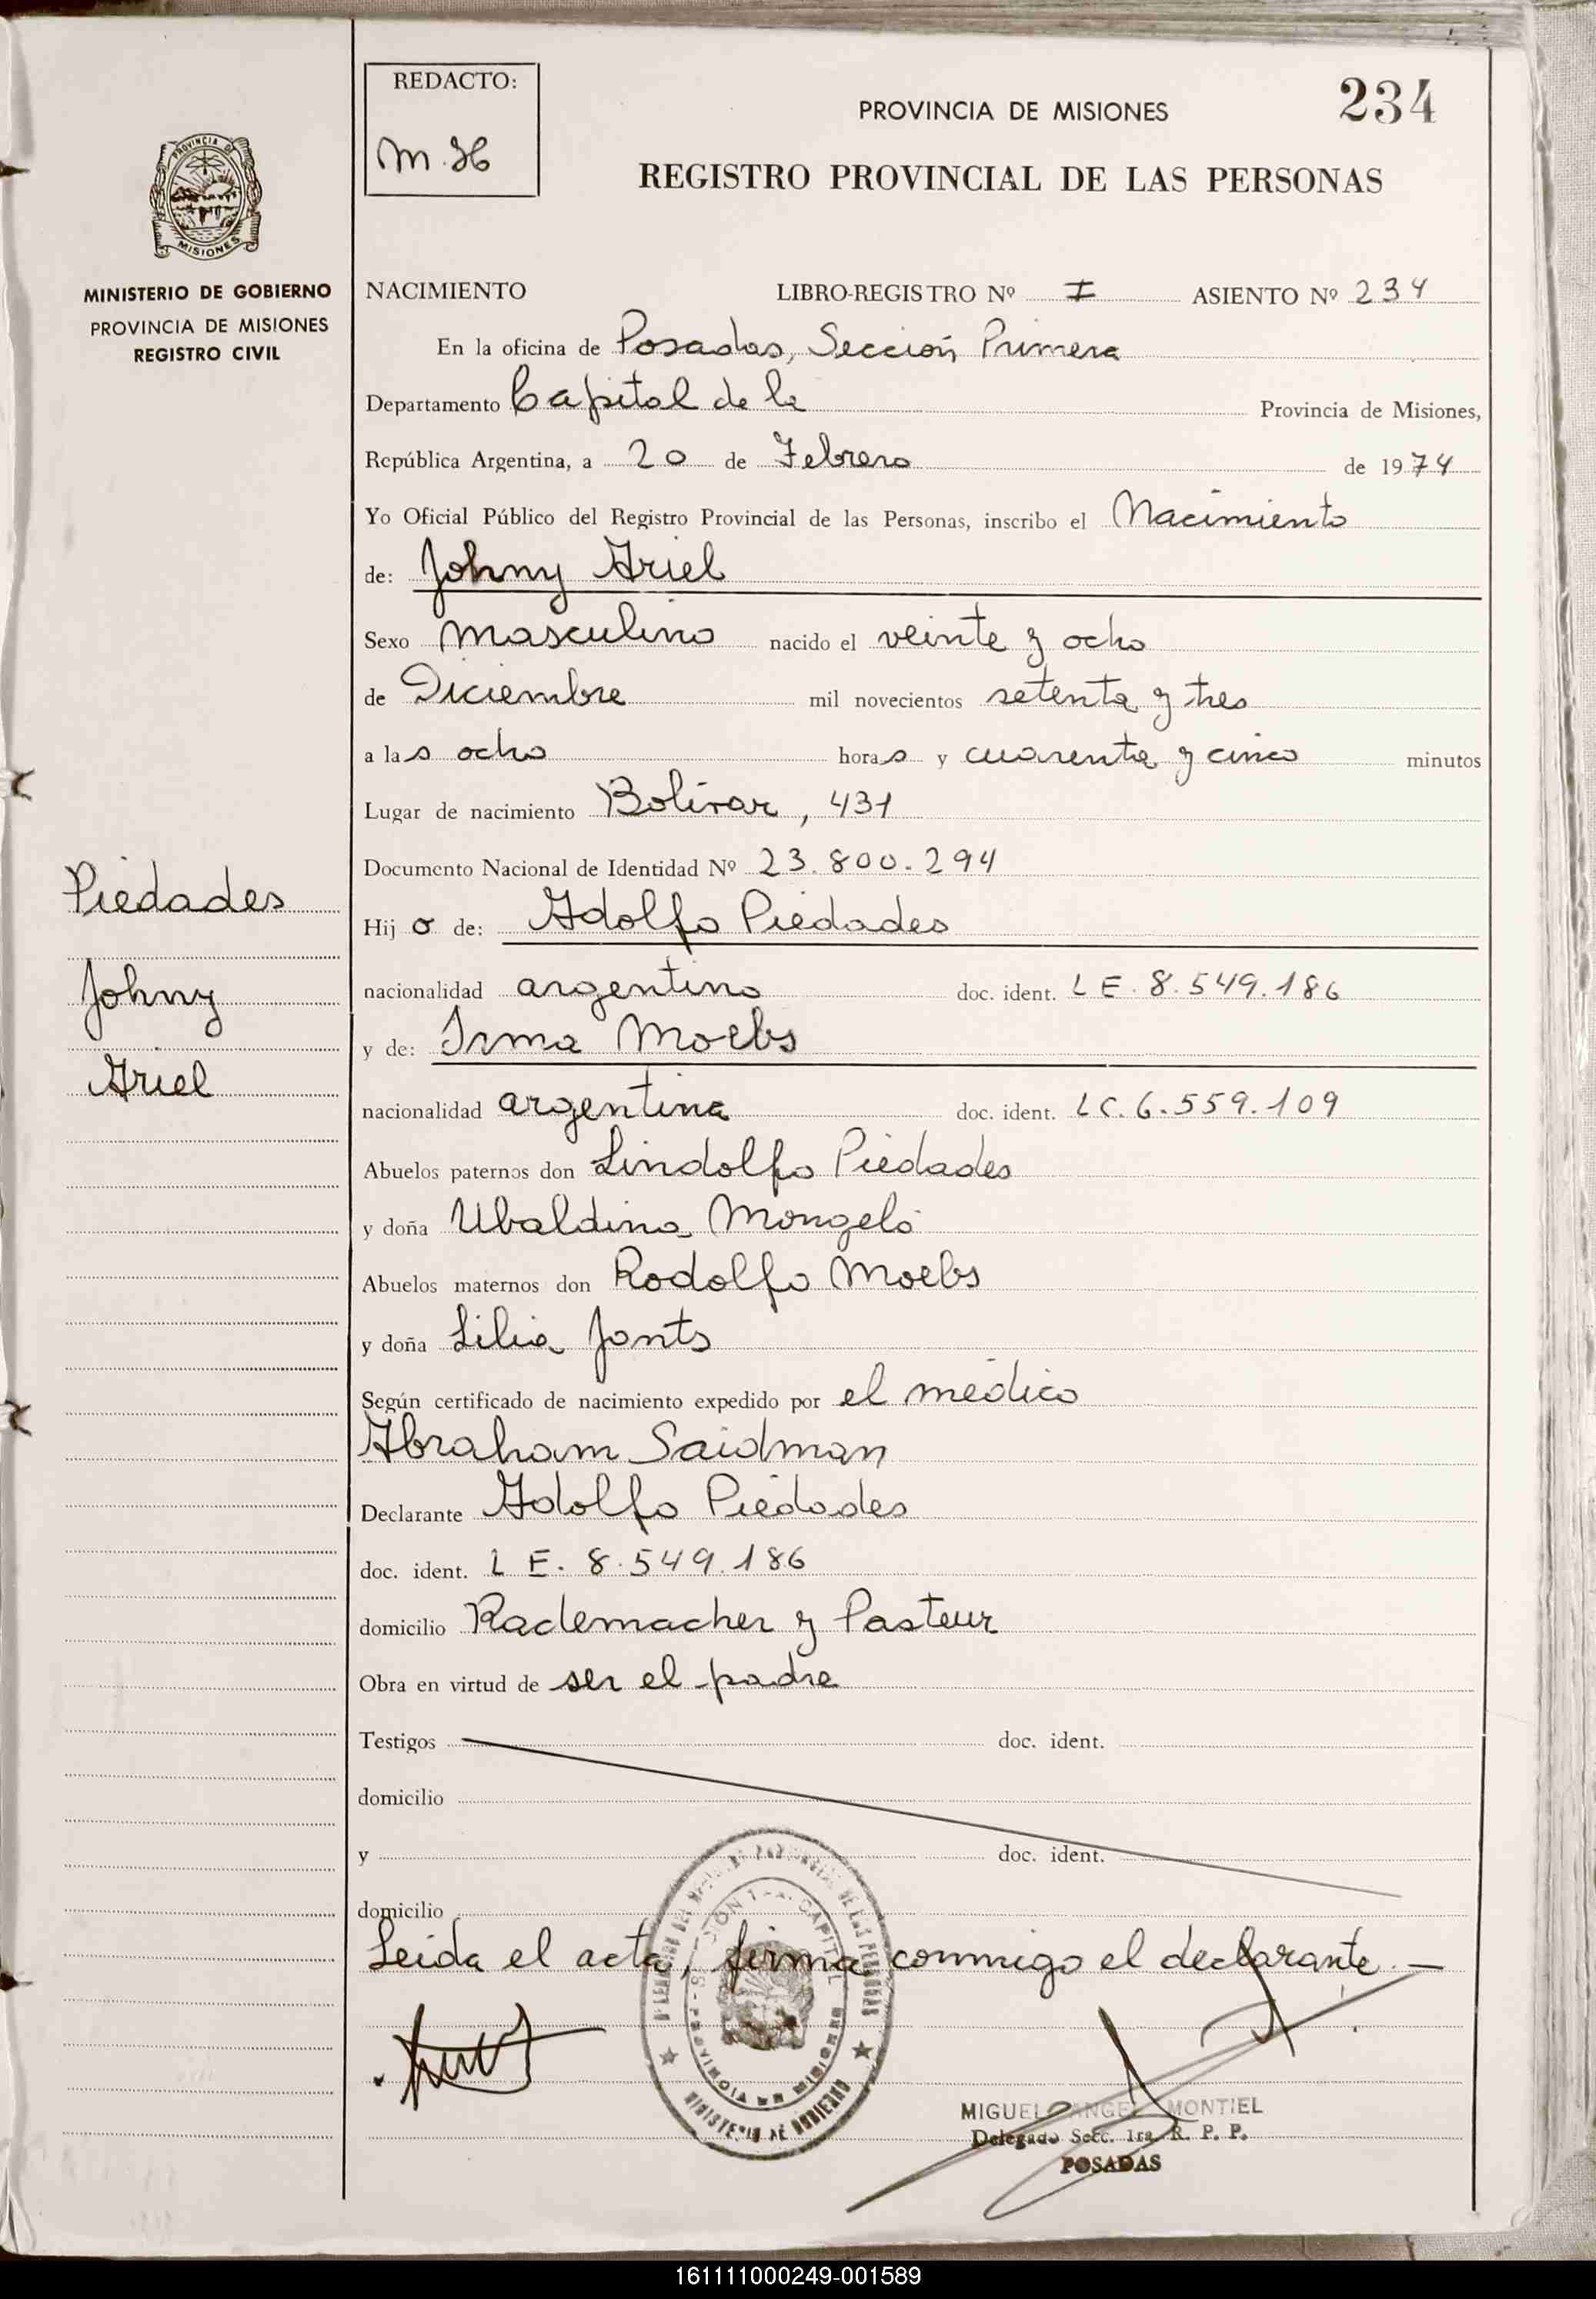 REDACTO:
M.H
PROVINCIA DE MISIONES
234
REGISTRO PROVINCIAL DE LAS PERSONAS
PROVINCIA DE
MISIONES
MINISTERIO DE GOBIERNO
PROVINCIA DE MISIONES
REGISTRO CIVIL
NACIMIENTO LIBRO-REGISTRO Nº I ASIENTO Nº 234
En la oficina de Posadas, Sección Primera
Departamento Capital de la Provincia de Misiones,
República Argentina, a 20 de Febrero de 1974
Yo Oficial Público del Registro Provincial de las Personas, inscribo el Nacimiento
de: Johny Ariel
Sexo masculino nacido el veinte y ocho
de Diciembre mil novecientos setenta y tres
a las ocho horas y cuarenta y cinco minutos
Lugar de nacimiento Bolívar, 431
Documento Nacional de Identidad Nº 23.800.294
Piedades
Hijo de: Adolfo Piedades
Johny
nacionalidad argentino doc. ident. LE. 8.549.186
y de: Irma Moebs
Ariel
nacionalidad argentina doc. ident. LC. 6.559.109
Abuelos paternos don Lindolfo Piedades
y doña Ubaldina Mongeló
Abuelos maternos don Rodolfo Moebs
y doña Lilia Jonts
Según certificado de nacimiento expedido por el médico
Abraham Saidman
Declarante Adolfo Piedades
doc. ident. L E. 8.549.186
domicilio Rademacher y Pasteur
Obra en virtud de ser el padre
Testigos doc. ident.
domicilio
y doc. ident.
domicilio
Leída el acta, firma conmigo el declarante.—
MINISTERIO DE GOBIERNO
MIGUEL ANGEL MONTIEL
Delegado Secc. 1ra. R. P. P.
POSADAS
161111000249-001589